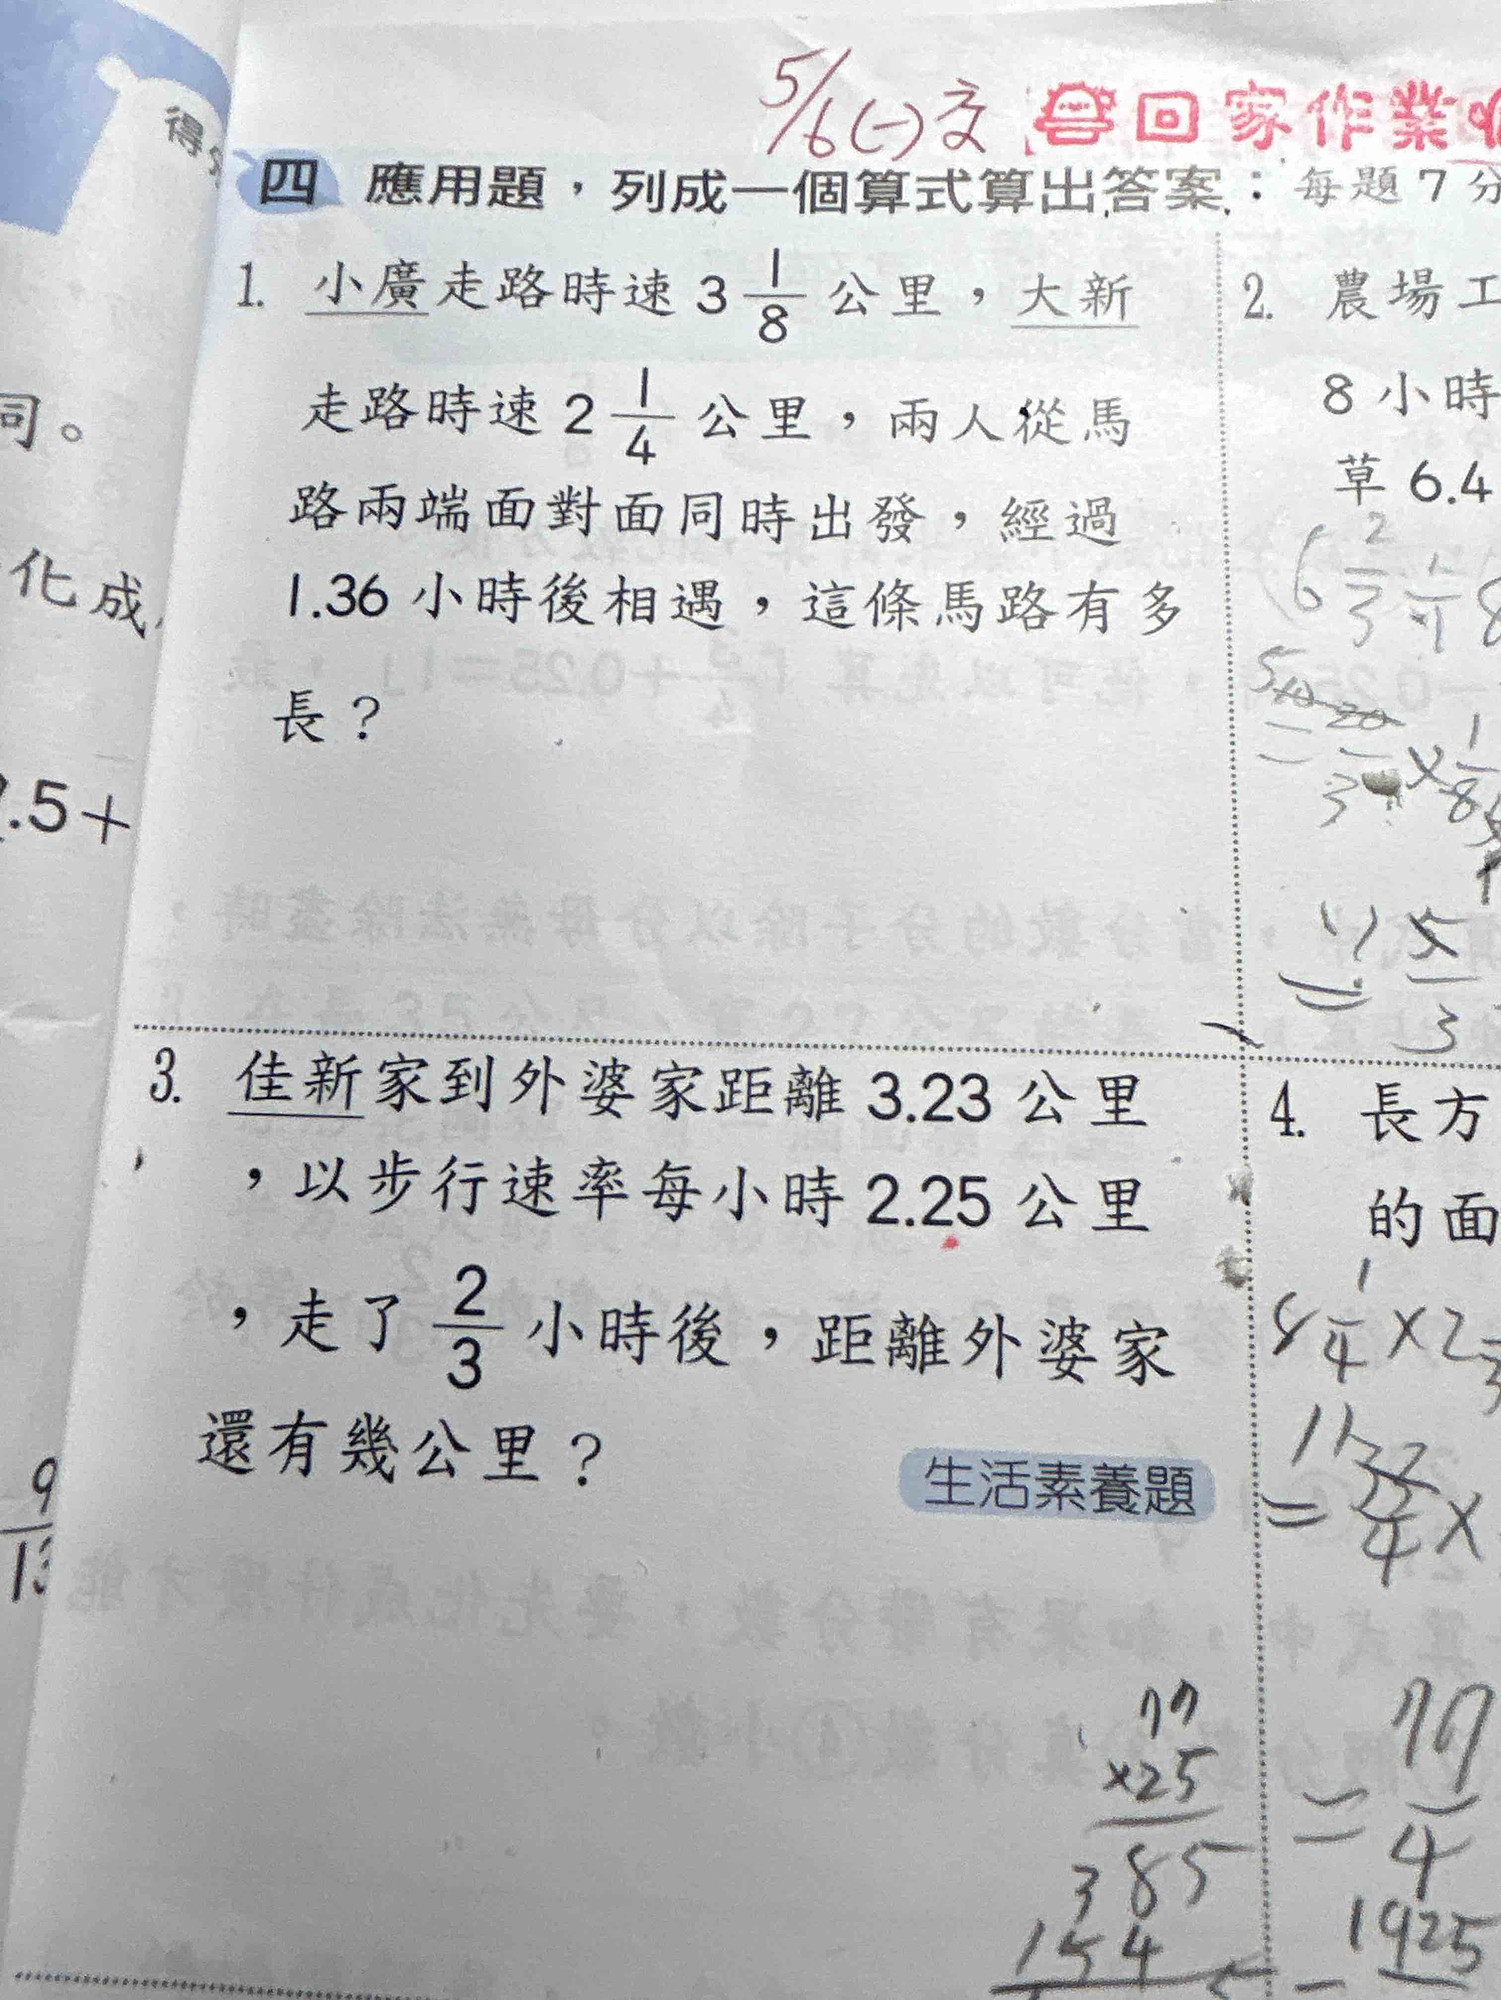 5/6(一)交 回家作業
得
四 應用題，列成一個算式算出答案：每題7分
1. 小廣走路時速 3 1/8 公里，大新
走路時速 2 1/4 公里，兩人從馬
路兩端面對面同時出發，經過
1.36 小時後相遇，這條馬路有多
長？
2. 農場工
8 小時
草 6.4
6 2/3 ÷ 8
= 20/3 × 1/8
= 5/3
3. 佳新家到外婆家距離 3.23 公里
，以步行速率每小時 2.25 公里
，走了 2/3 小時後，距離外婆家
還有幾公里？
生活素養題
77
×25
385
154
4. 長方
的面
8 1/4 × 2
= 4 ×
= 77/4
= 1925
同。
化成
.5+
9/13